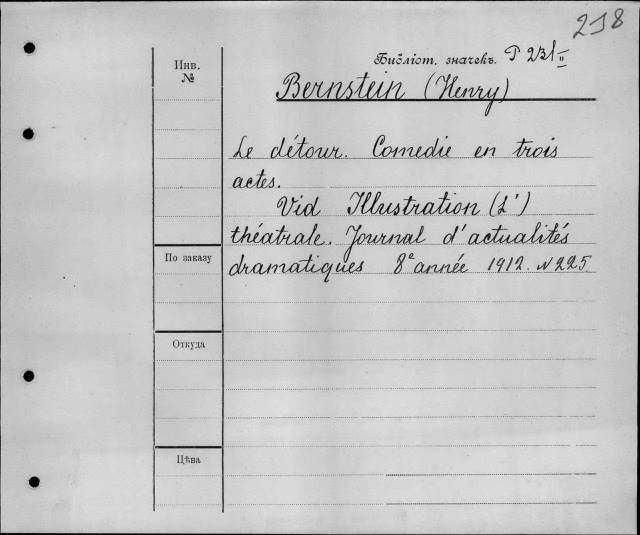 218
Библіот. значекъ. P 231 II
Инв.
№
Bernstein (Henry)
Le détour. Comedie en trois
actes.
Vid Illustration (L')
théatrale. Journal d'actualités
По заказу
dramatiques 8e année 1912. N 225.
Откуда
Цѣна